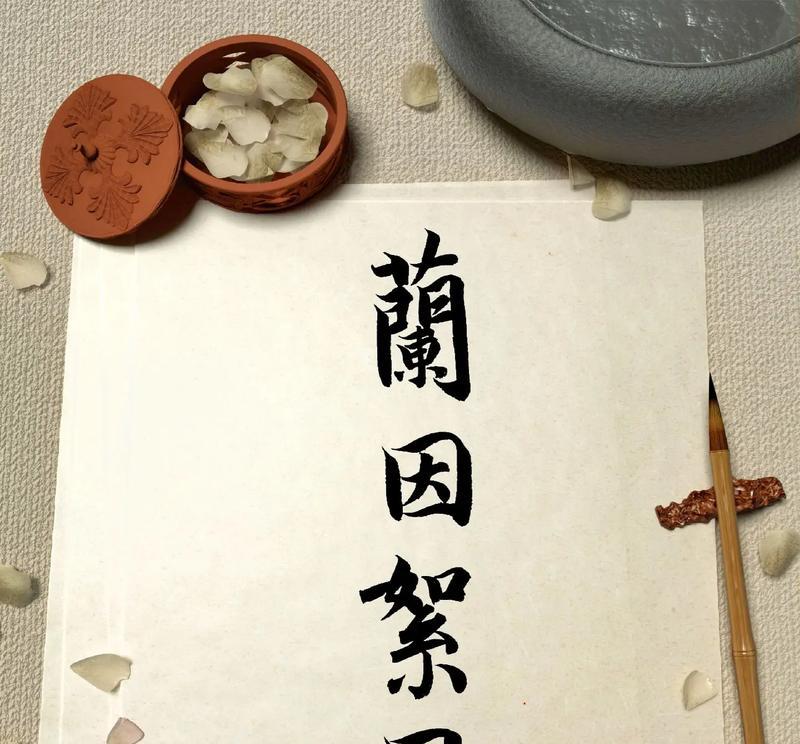 蘭因絮